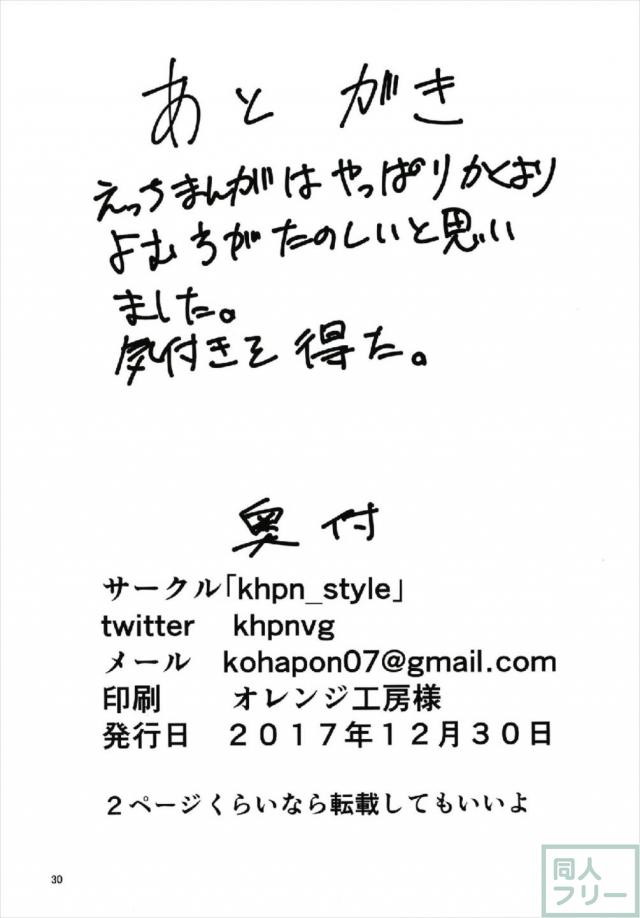 あとがき
えっちまんがはやっぱりかくより
よむ方がたのしいと思い
ました。
気付きを得た。
奥付
サークル「khpn_style」
twitter khpnvg
メール kohapon07@gmail.com
印刷 オレンジ工房様
発行日 2017年12月30日
2ページくらいなら転載してもいいよ
30
同人
フリー